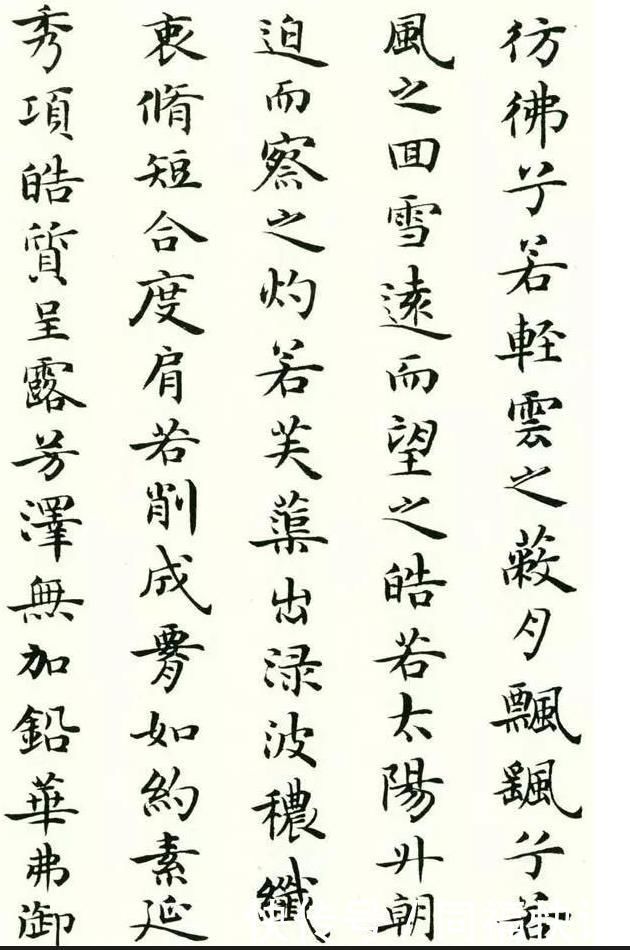 彷彿兮若軽雲之蔽月飄飖兮若
風之囬雪遠而望之皓若太陽升朝
迫而察之灼若芙蕖出渌波穠纖
衷脩短合度肩若削成腰如約素延
秀項皓質呈露芳澤無加鉛華弗御